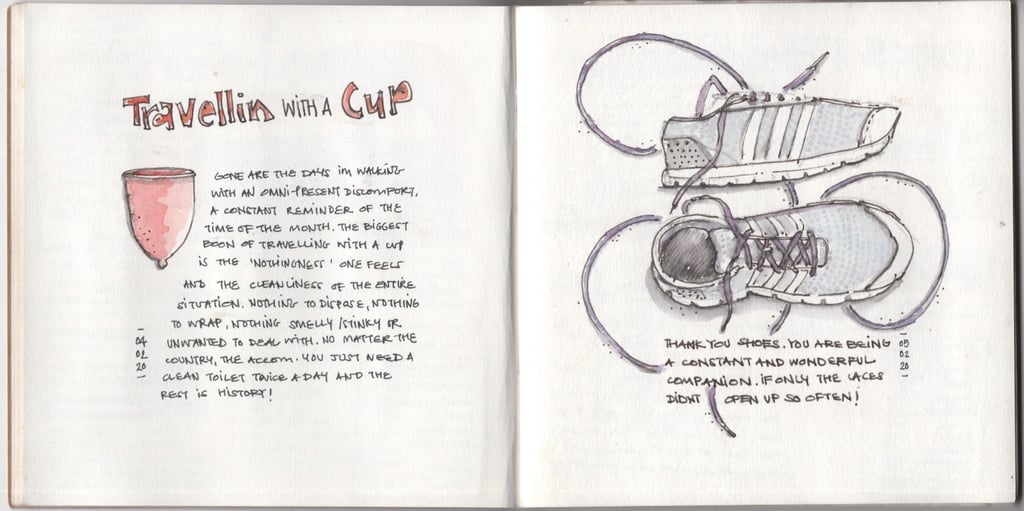 Travellin WITH A Cup
GONE ARE THE DAYS im WALKING
WITH AN OMNI-PRESENT DISCOMFORT,
A CONSTANT REMINDER OF THE
TIME OF THE MONTH. THE BIGGEST
BOON OF TRAVELLING WITH A CUP
IS THE 'NOTHINGNESS' ONE FEELS
AND THE CLEANLINESS OF THE ENTIRE
SITUATION. NOTHING TO DISPOSE, NOTHING
TO WRAP, NOTHING SMELLY/STINKY OR
UNWANTED TO DEAL WITH. NO MATTER THE
COUNTRY, THE ACCOM. YOU JUST NEED A
CLEAN TOILET TWICE A DAY AND THE
REST IS HISTORY!
04
02
20
THANK YOU SHOES. YOU ARE BEING
A CONSTANT AND WONDERFUL
COMPANION. IF ONLY THE LACES
DIDNT OPEN UP SO OFTEN!
05
02
20